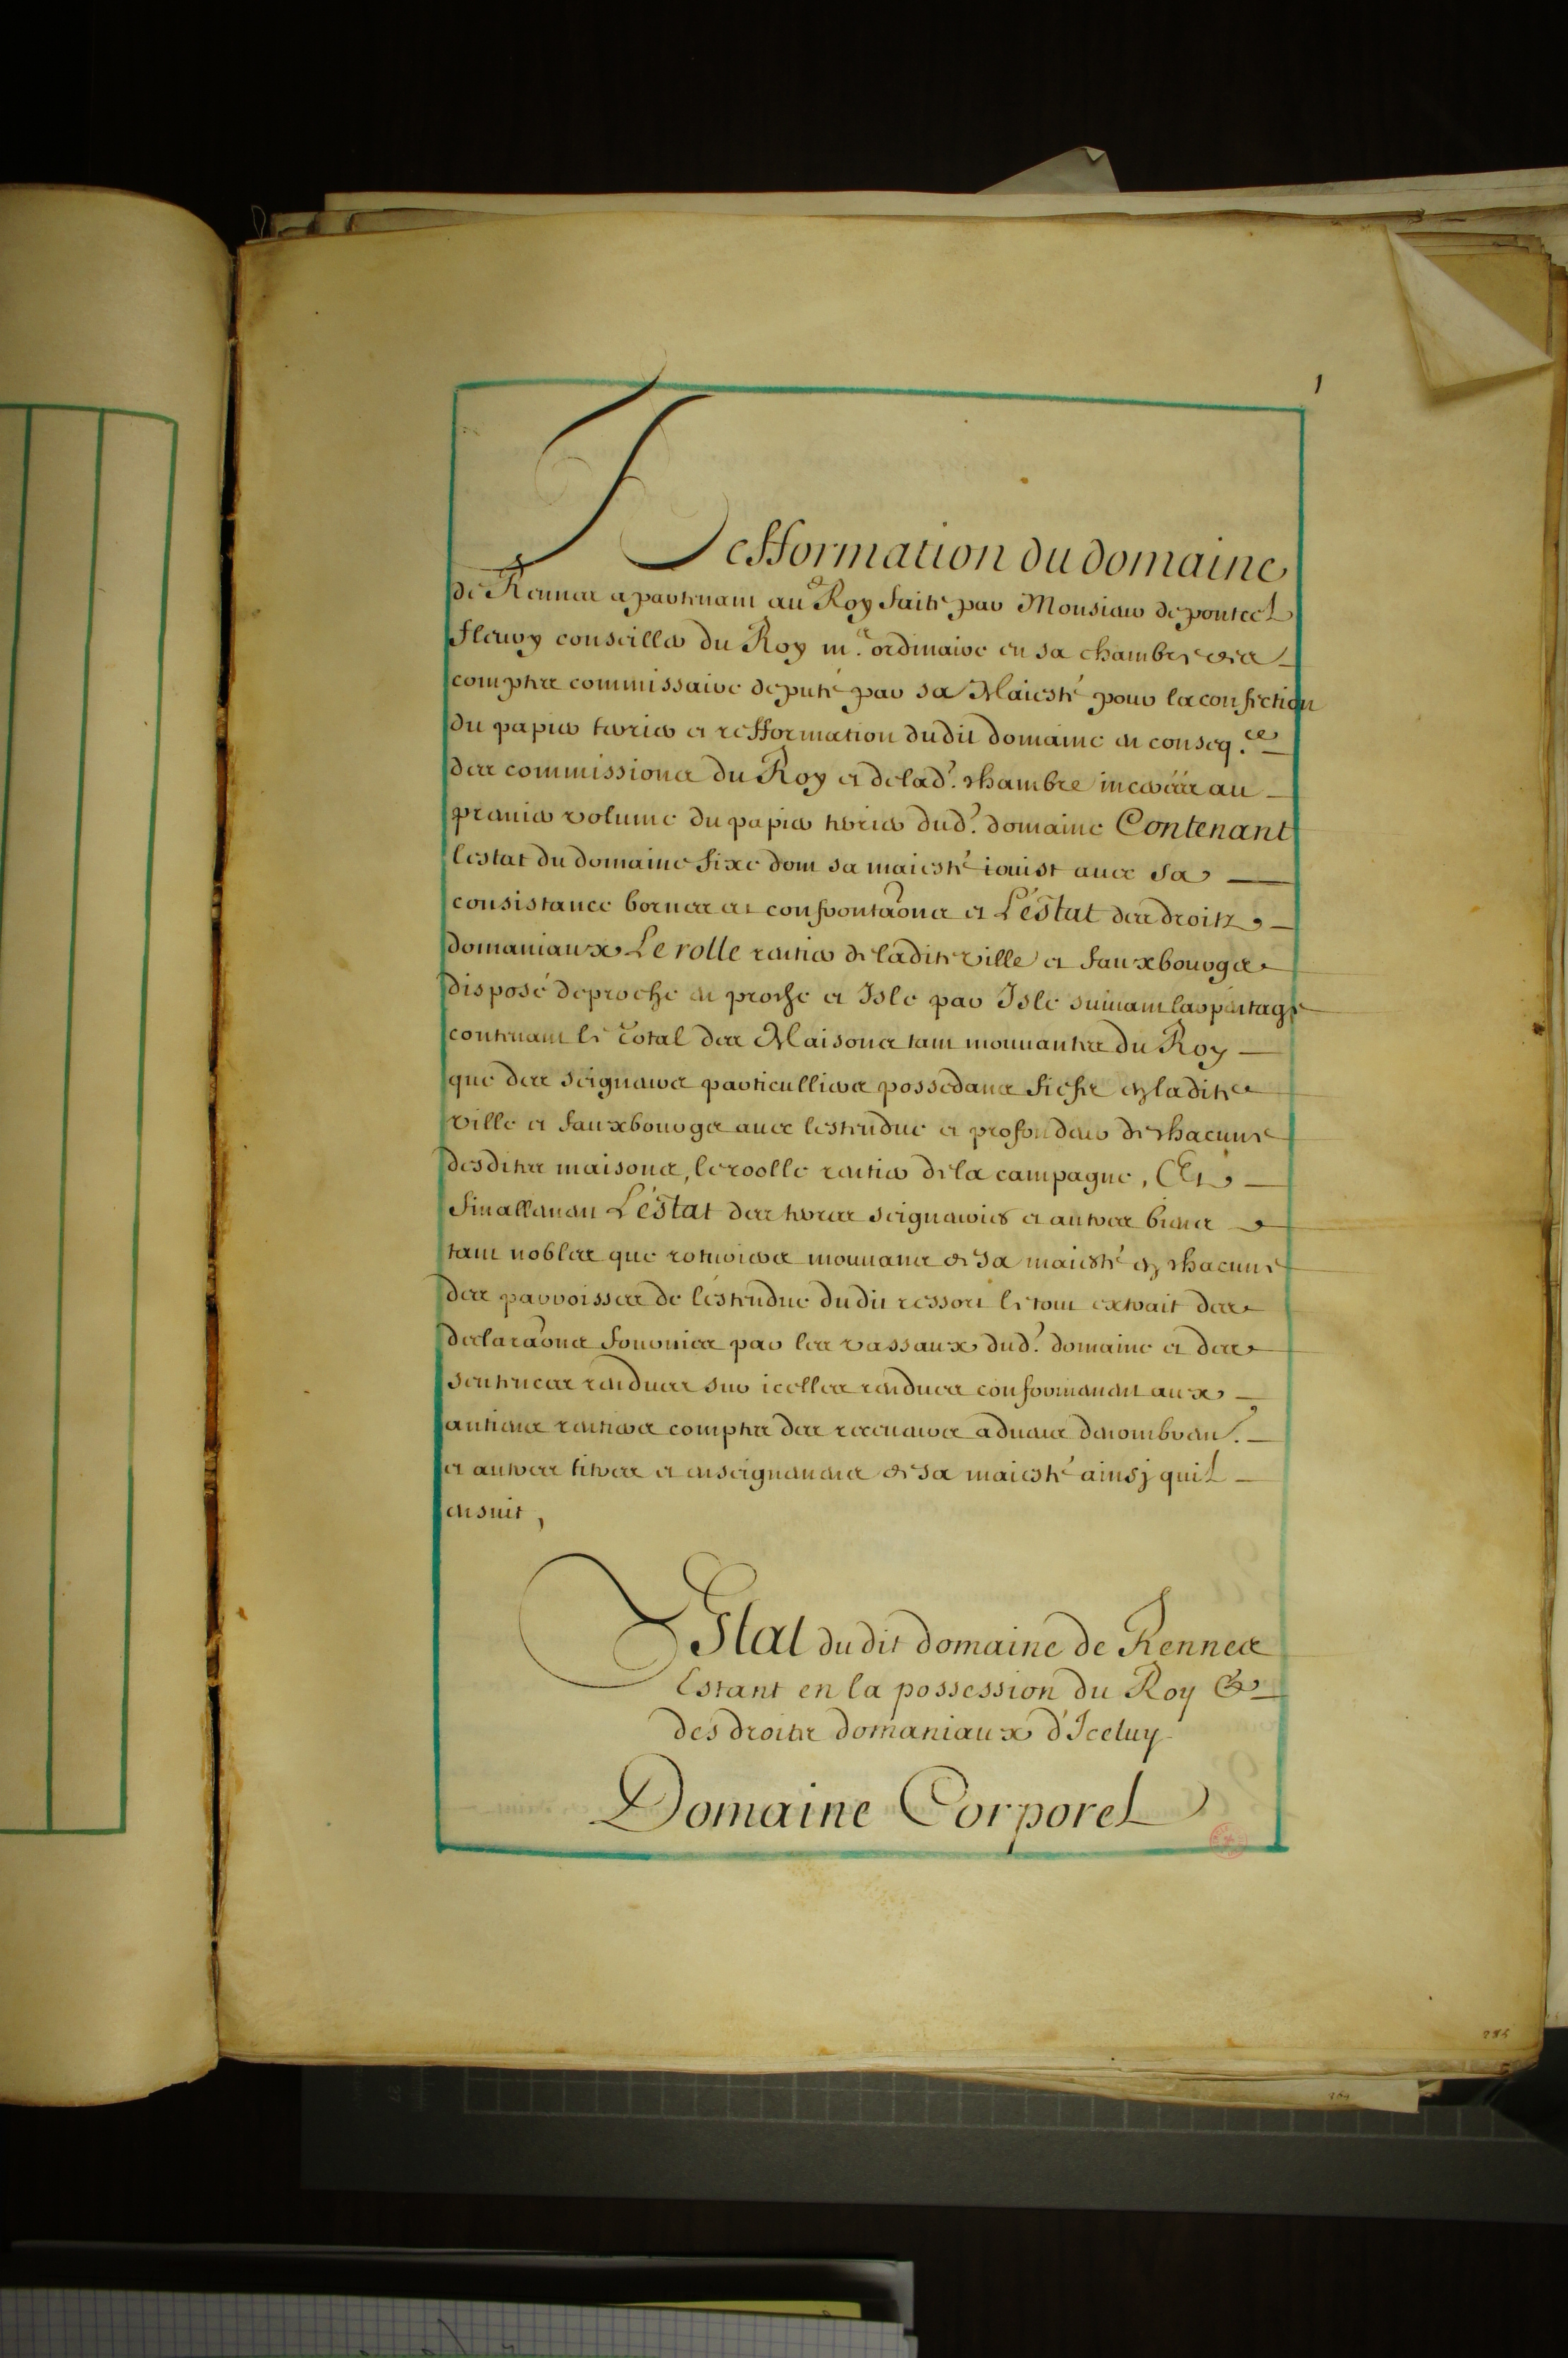 1
Refformation du domaine
de Rennes apartenant au Roy faite par Monsieur de pontee
fleury conseiller du Roy m.e ordinaire en sa chambre des
comptes commissaire deputé par sa Maiesté pour la confection
du papier terrier et refformation dudit domaine en conseq.ce
des commissions du Roy et de lad. chambre incerées au
premier volume du papier terrier dud. domaine Contenant
lestat du domaine fixe dont sa maiesté iouist auec sa
consistance bornes et confrontaõns et L'éstat des droitz
domaniaux Le rolle rentier de ladite ville et fauxbourgs
disposé de proche en proche et Isle par Isle suiuant larpentage
contenant le total des Maisons tant mouuantes du Roy
que des seigneurs particulliers possedans fiefs en ladite
ville et fauxbourgs auec lestendue et profondeur de chacune
desdites maisons, le roolle rentier de la campagne, Et
finallement L'éstat des terres seigneuries et autres biens
tant nobles que roturiers mouuans de sa maiesté en chacune
des parroisses de léstendue dudit ressort le tout extrait des
declaraõns fournies par les vassaux dud. domaine et des
sentences rendues sur icelles rendues conformement aux
antiens rentiers comptes des receueurs adueus denombrem.
et autres titres et enseignemens de sa maiesté ainsj quil
ensuit,
Estat dudit domaine de Rennes
Estant en la possession du Roy &
des droits domaniaux d'Iceluy
Domaine Corporel